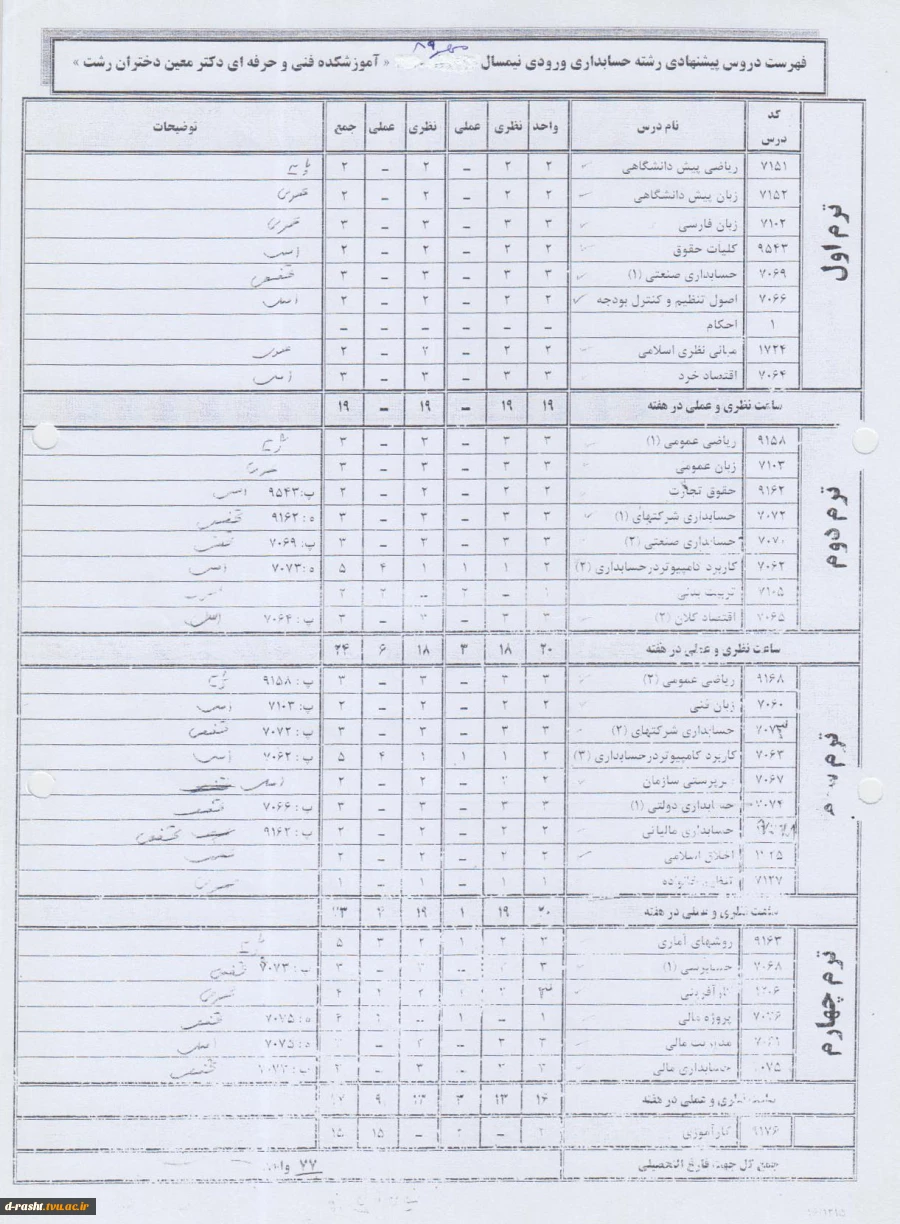 فهرست دروس پیشنهادی رشته حسابداری ورودی نیمسال مهر ۸۹ « آموزشکده فنی و حرفه ای دکتر معین دختران رشت »
کد درس نام درس واحد نظری عملی نظری عملی جمع توضیحات
ترم اول
۷۱۵۱ ریاضی پیش دانشگاهی ۲ ۲ – ۲ – ۲ پایه
۷۱۵۲ زبان پیش دانشگاهی ۲ ۲ – ۲ – ۲ عمومی
۷۱۰۲ زبان فارسی ۳ ۳ – ۳ – ۳ عمومی
۹۵۴۳ کلیات حقوق ۲ ۲ – ۲ – ۲ اصلی
۷۰۶۹ حسابداری صنعتی (۱) ۳ ۳ – ۳ – ۳ تخصصی
۷۰۶۶ اصول تنظیم و کنترل بودجه ۲ ۲ – ۲ – ۲ اصلی
۱ احکام – – – – – –
۱۷۲۴ مبانی نظری اسلامی ۲ ۲ – ۲ – ۲ عمومی
۷۰۶۴ اقتصاد خرد ۳ ۳ – ۳ – ۳ اصلی
ساعت نظری و عملی در هفته ۱۹ ۱۹ – ۱۹ – ۱۹
ترم دوم
۹۱۵۸ ریاضی عمومی (۱) ۳ ۳ – ۳ – ۳ پایه
۷۱۰۳ زبان عمومی ۳ ۳ – ۳ – ۳ عمومی
۹۱۶۲ حقوق تجارت ۲ ۲ – ۲ – ۲ پ: ۹۵۴۳ اصلی
۷۰۷۲ حسابداری شرکتهای (۱) ۳ ۳ – ۳ – ۳ ه: ۹۱۶۲ تخصصی
۷۰۷۰ حسابداری صنعتی (۲) ۳ ۳ – ۳ – ۳ پ: ۷۰۶۹ تخصصی
۷۰۶۲ کاربرد کامپیوتردرحسابداری (۲) ۲ ۱ ۱ ۱ ۴ ۵ ه: ۷۰۷۳ اصلی
۷۱۰۵ تربیت بدنی
۷۰۶۵ اقتصاد کلان (۲) ۳ ۳ – ۳ – ۳ پ: ۷۰۶۴ اصلی
ساعت نظری و عملی در هفته ۲۰ ۱۸ ۳ ۱۸ ۶ ۲۴
ترم سوم
۹۱۶۸ ریاضی عمومی (۲) ۳ ۳ – ۳ – ۳ پ: ۹۱۵۸ پایه
۷۰۶۰ زبان فنی ۲ ۲ – ۲ – ۲ پ: ۷۱۰۳ اصلی
۷۰۷۳ حسابداری شرکتهای (۲) ۳ ۳ – ۳ – ۳ پ: ۷۰۷۲ تخصصی
۷۰۶۳ کاربرد کامپیوتردرحسابداری (۳) ۲ ۱ ۱ ۱ ۴ ۵ پ: ۷۰۶۲ اصلی
۷۰۶۷ سرپرستی سازمان ۲ ۲ – ۲ – ۲ اصلی
۷۰۷۴ حسابداری دولتی (۱) ۳ ۳ – ۳ – ۳ پ: ۷۰۶۶ تخصصی
حسابداری مالیاتی ۲ ۲ – ۲ – ۲ پ: ۹۱۶۲ تخصصی
اخلاق اسلامی ۲ ۲ – ۲ – ۲ عمومی
۷۱۲۷ تنظیم خانواده ۱ ۱ – ۱ – ۱ عمومی
ساعت نظری و عملی در هفته ۲۰ ۱۹ ۱ ۱۹ ۴ ۲۳
ترم چهارم
۹۱۶۳ روشهای آماری ۳ ۲ ۱ ۲ ۳ ۵ پایه
۷۰۶۸ حسابرسی (۱) ۳ – – ۳ پ: ۷۰۷۳ تخصصی
کارآفرینی
پروژه مالی ۱ – ۱ ه: ۷۰۷۵ تخصصی
مدیریت مالی ۳ ۳ – ه: ۷۰۷۵ اصلی
حسابداری مالی تخصصی
ساعت نظری و عملی در هفته ۱۶ ۱۳ ۳ ۱۳ ۹
۹۱۷۶ کارآموزی ۱۵ ۱۵
جمع کل جهت فارغ التحصیلی ۷۷ واحد
d-rasht.tvu.ac.ir